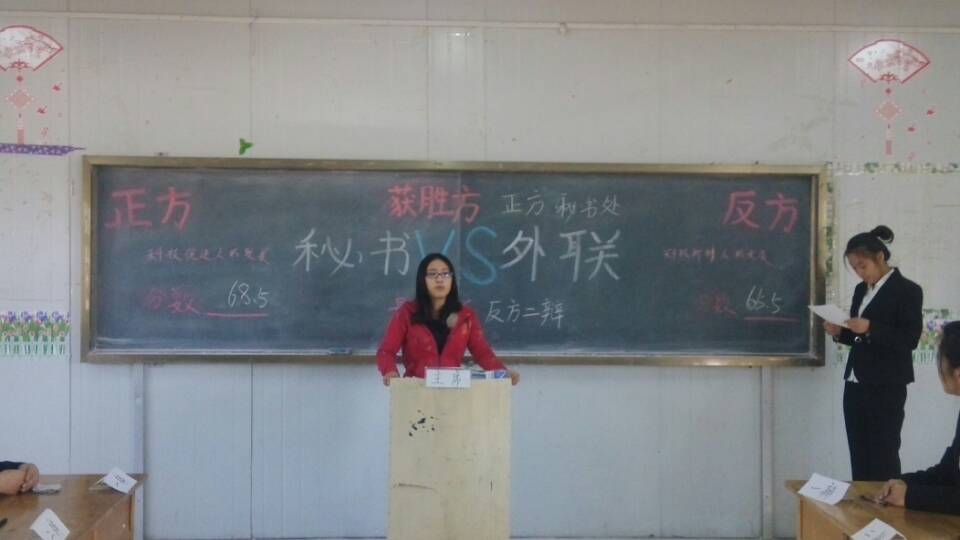 正方
获胜方 正方 秘书处
反方
科技促进人的发展
秘书VS外联
科技抑制人的发展
分数 68.5
反方二辩
分数 65.5
主席